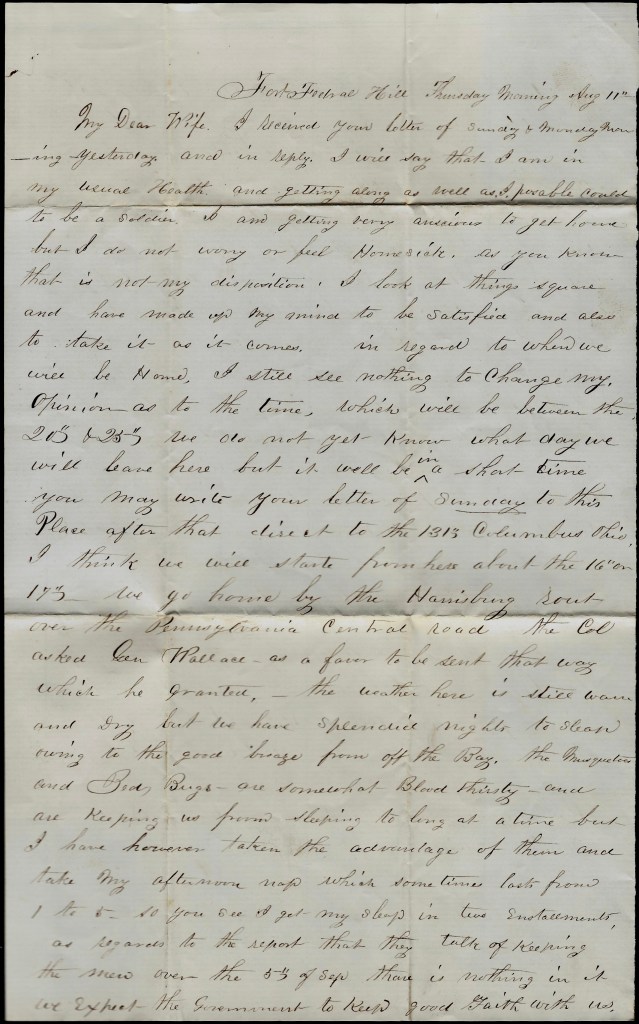 Fort Fedral Hill Thursday Morning Aug 11th
My Dear Wife. I recived your letter of Sunday & Monday Morn
-ing yesterday and in reply. I will say that I am in
my usual Health and getting along as well as I posable could
to be a Soldier. I am getting very anscious to get home
but I do not worry or feel Homesick. as you know
that is not my disposition. I look at things square
and have made up my mind to be satisfied and also
to take it as it comes. in regard to when we
will be Home, I still see nothing to change my
Opinion as to the time, which will be between the
20th & 25th we do not yet know what day we
will leave here but it will be in a short time
you may write your letter of Sunday to this
Place after that direct to the 131st Columbus Ohio.
I think we will starte from here about the 16th or
17th we go home by the Harrisburg rout
over the Pennsylvania Central road the Col
asked Gen Wallace as a favor to be sent that way
which he granted, - the weather here is still warm
and Dry but we have splendid nights to sleap
owing to the good breaze from off the Bay. the Musquetoes
and Bed Bugs - are somewhat Blood thirsty - and
are keeping us from sleaping to long at a time but
I have however taken the advantage of them and
take my afternoon nap which sometimes lasts from
1 to 5 - so you see I get my sleap in two Enstallments,
as regards to the report that they talk of keeping
the men over the 5th of Sep thare is nothing in it
we Expect the Government to keep good Faith with us.